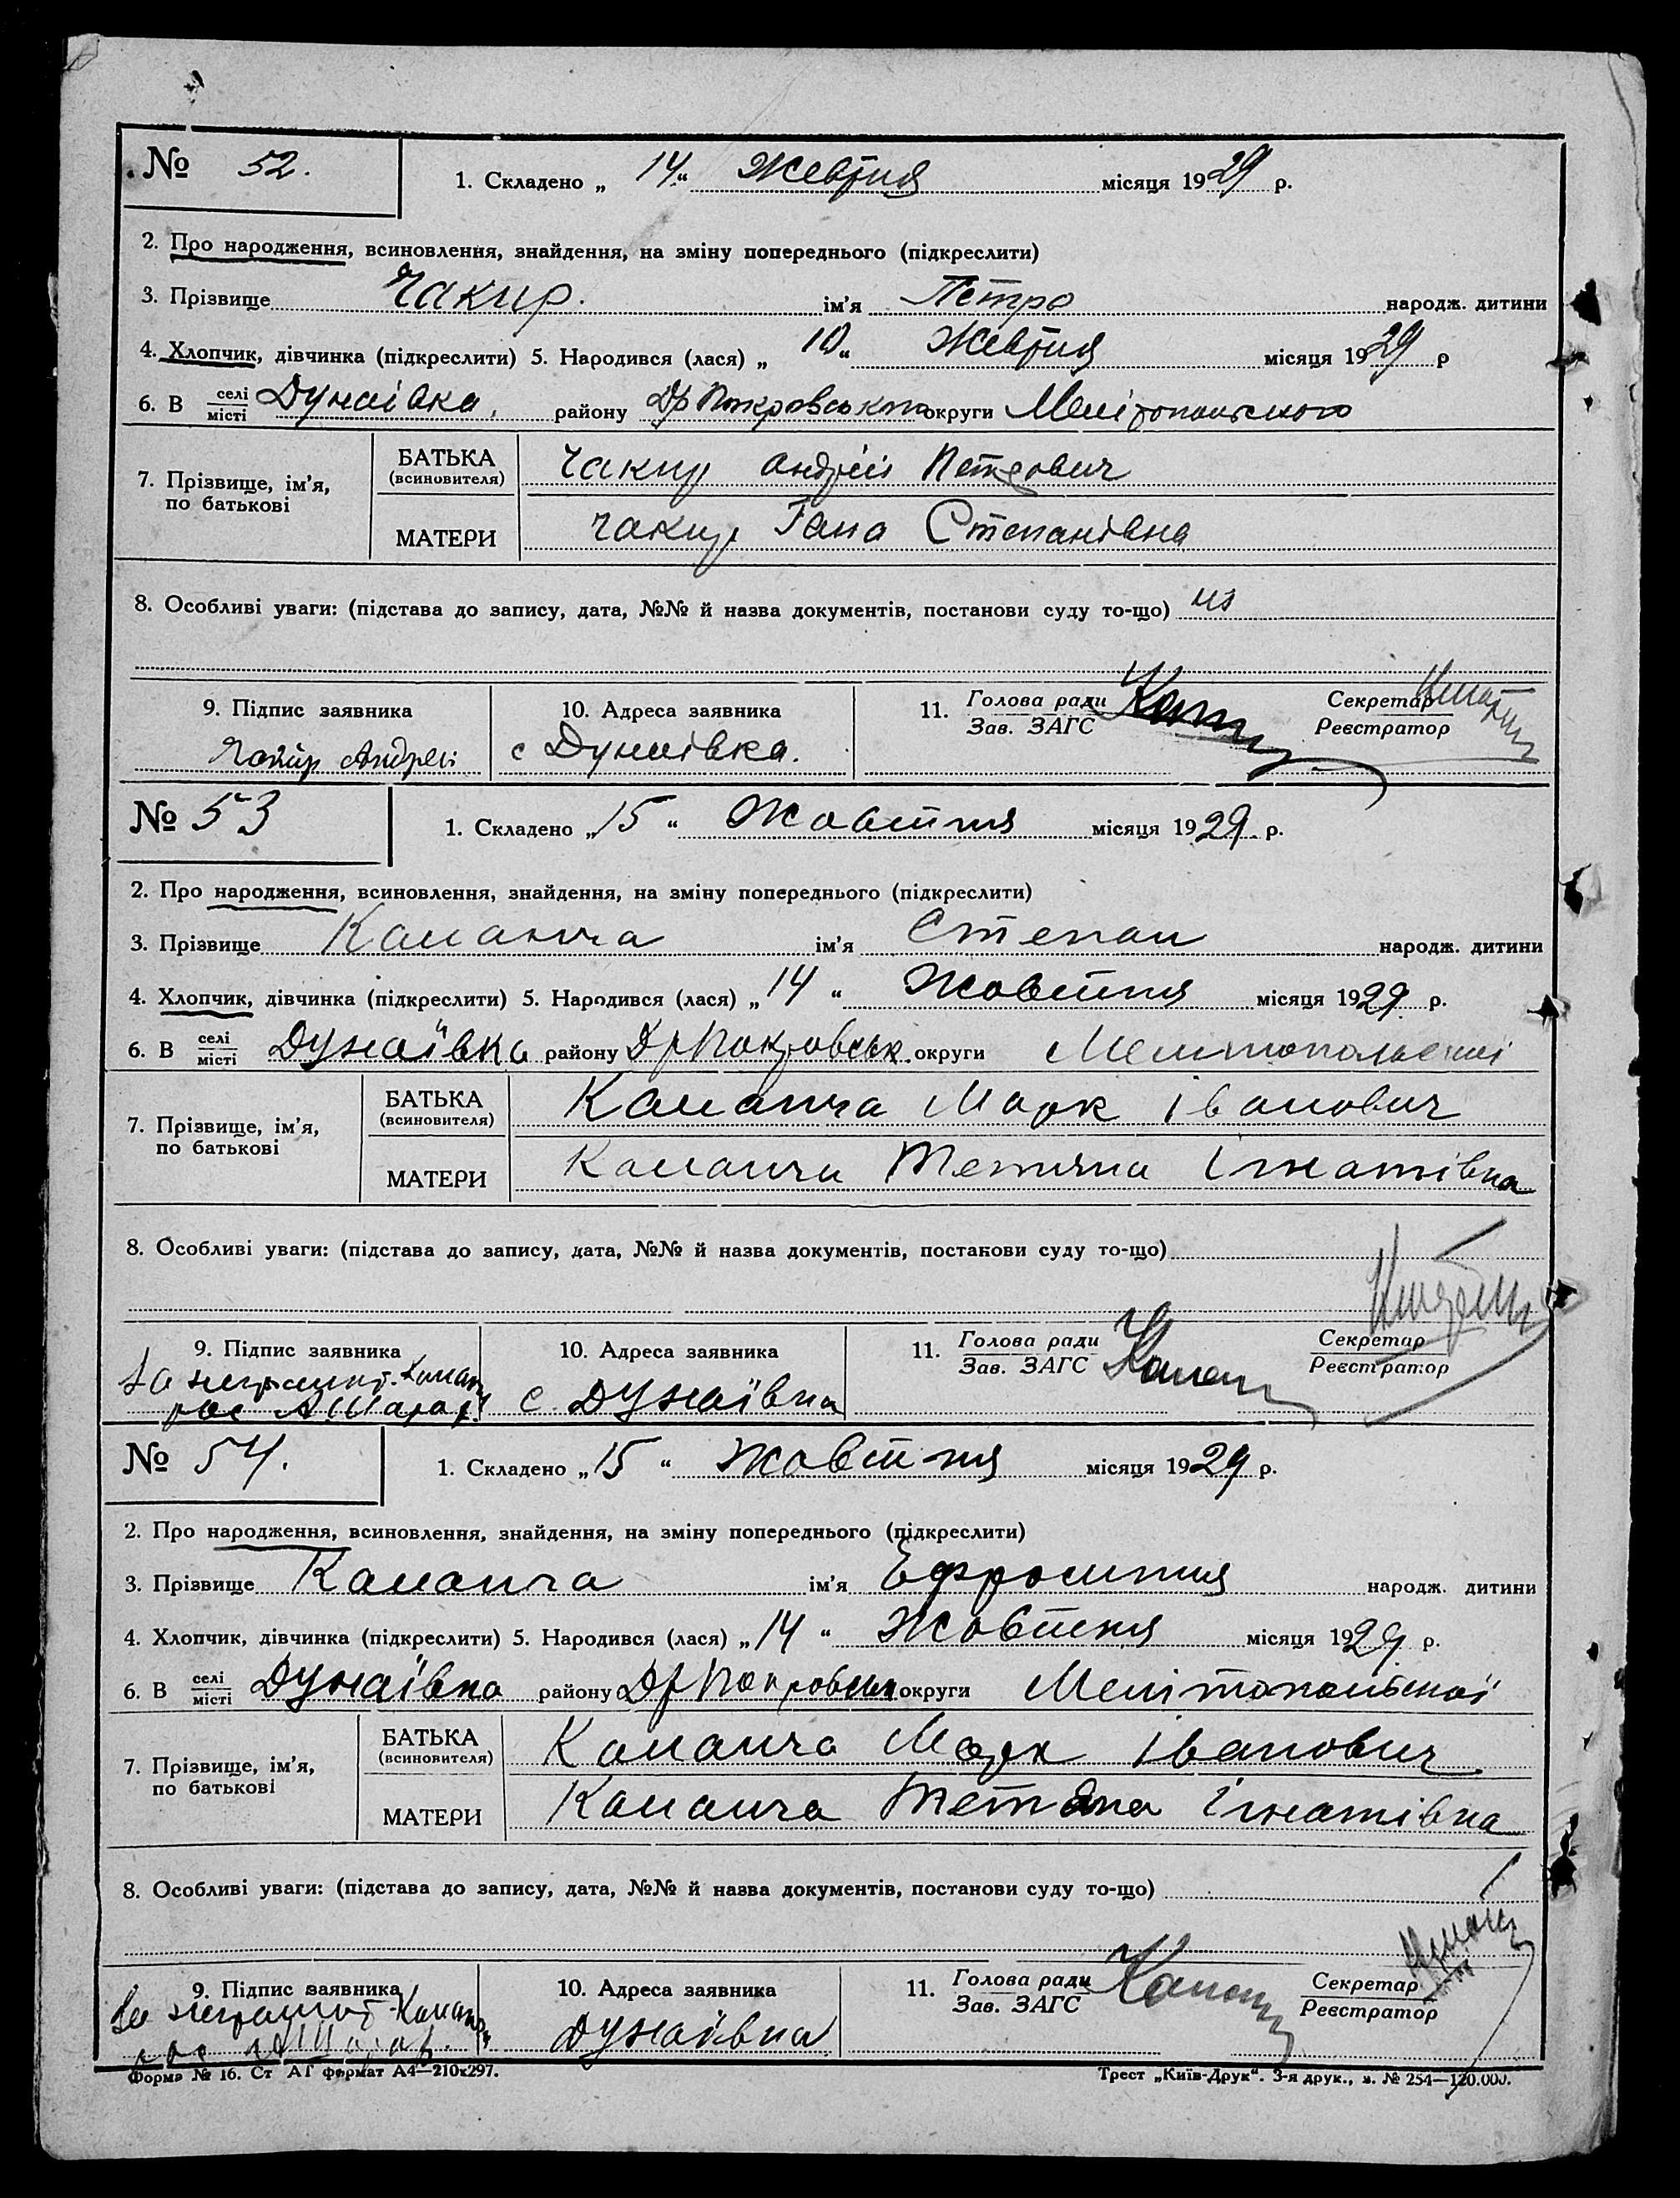 № 52. 1. Складено „ 14 “ Жевтня місяця 1929 р.
2. Про народження, всиновлення, знайдення, на зміну попереднього (підкреслити)
3. Прізвище Чакир. ім’я Петро народж. дитини
4. Хлопчик, дівчинка (підкреслити) 5. Народився (лася) „ 10 “ Жевтня місяця 1929 р
6. В селі Дунаівка, району Др Покровського округи Мелітопольского
місті
7. Прізвище, ім’я, по батькові
БАТЬКА (всиновителя) Чакир Андрій Петрович
МАТЕРИ Чакир Гана Степанівна
8. Особливі уваги: (підстава до запису, дата, №№ й назва документів, постанови суду то-що)
9. Підпис заявника 10. Адреса заявника 11. Голова ради Секретар
Зав. ЗАГС Реєстратор
Чакір Андрей с Дунаівка.
№ 53 1. Складено „ 15 “ Жовтня місяця 1929 р.
2. Про народження, всиновлення, знайдення, на зміну попереднього (підкреслити)
3. Прізвище Каланча ім’я Степан народж. дитини
4. Хлопчик, дівчинка (підкреслити) 5. Народився (лася) „ 14 “ Жовтня місяця 1929 р.
6. В селі Дунаївка району Др Покровськ. округи Мелитопольскиі
місті
7. Прізвище, ім’я, по батькові
БАТЬКА (всиновителя) Каланча Марк Іванович
МАТЕРИ Каланча Тетяна Ігнатівна
8. Особливі уваги: (підстава до запису, дата, №№ й назва документів, постанови суду то-що)
9. Підпис заявника 10. Адреса заявника 11. Голова ради Секретар
Зав. ЗАГС Реєстратор
За неграмот. Каланч с. Дунаївка
рос
№ 54. 1. Складено „ 15 “ Жовтня місяця 1929 р.
2. Про народження, всиновлення, знайдення, на зміну попереднього (підкреслити)
3. Прізвище Каланча ім’я Ефросиния народж. дитини
4. Хлопчик, дівчинка (підкреслити) 5. Народився (лася) „ 14 “ Жовтня місяця 1929 р.
6. В селі Дунаївка району Др Покровськ округи Мелітопольскої
місті
7. Прізвище, ім’я, по батькові
БАТЬКА (всиновителя) Каланча Марк Іванович
МАТЕРИ Каланча Тетяна Ігнатівна
8. Особливі уваги: (підстава до запису, дата, №№ й назва документів, постанови суду то-що)
9. Підпис заявника 10. Адреса заявника 11. Голова ради Секретар
Зав. ЗАГС Реєстратор
За неграмот. Каланч Дунаівка
рос
Форма № 16. Ст АГ формат А4—210x297. Трест „Київ-Друк“. 3-я друк., з. № 254—120.000.